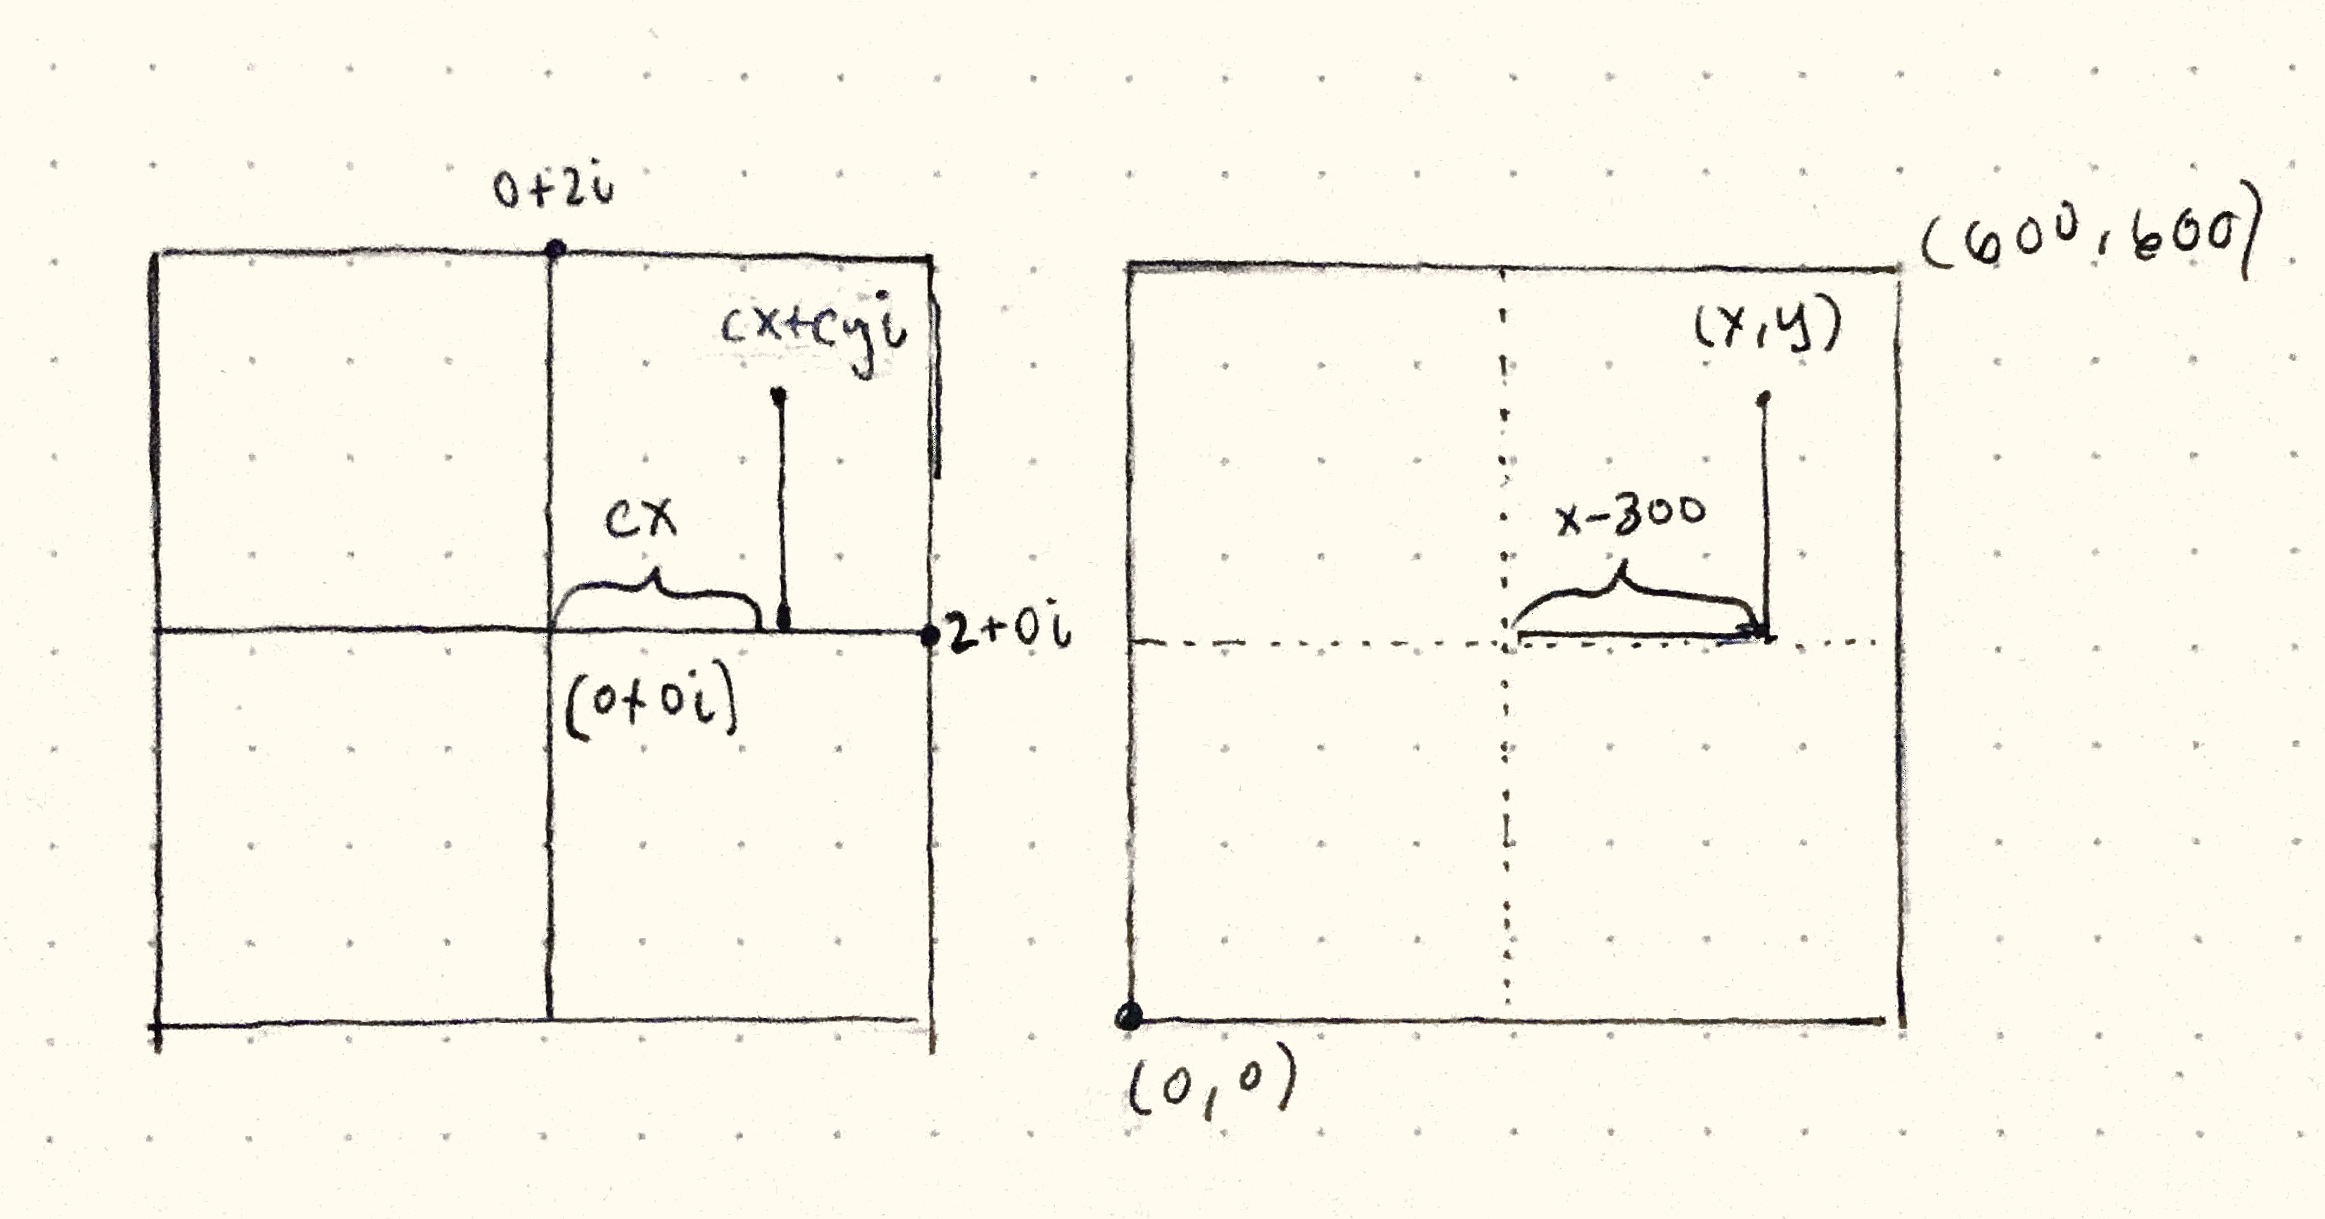 0+2i
cx+cyi
cx
2+0i
(0+0i)
(600,600)
(x,y)
x-300
(0,0)